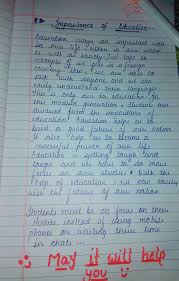 Importance of Education
Education plays an important role
in our life. Either in our school
as well as society. Just take an
example if we go in a foreign
country then, we are able to
talk with anyone and we can
easily understand their language.
This is only due to education. In
this modern generation, students are
away from the importance of
education. Education helps us to
build a good future of our nation
It also help us to become a
successful person of our life
Education is getting tough and
tough and we have to do more
focus on our studies. With the
help of education, we can easily
the future of our nation
Students must be do focus on their
studies instead of using mobile
phones or wasting there time
in chats...
May it will help
you